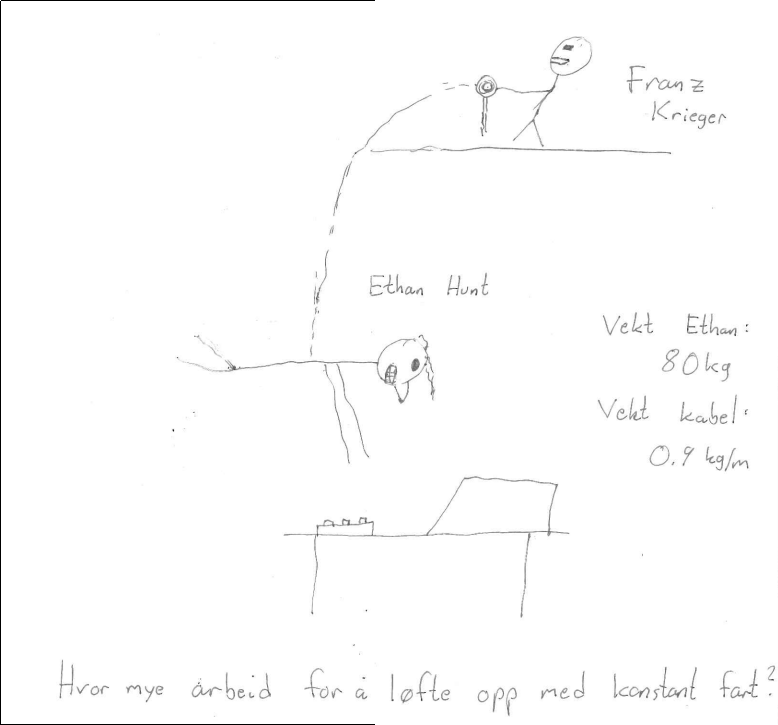 Franz
Krieger
Ethan Hunt
Vekt Ethan:
80kg
Vekt kabel:
0.9 kg/m
Hvor mye arbeid for å løfte opp med konstant fart?